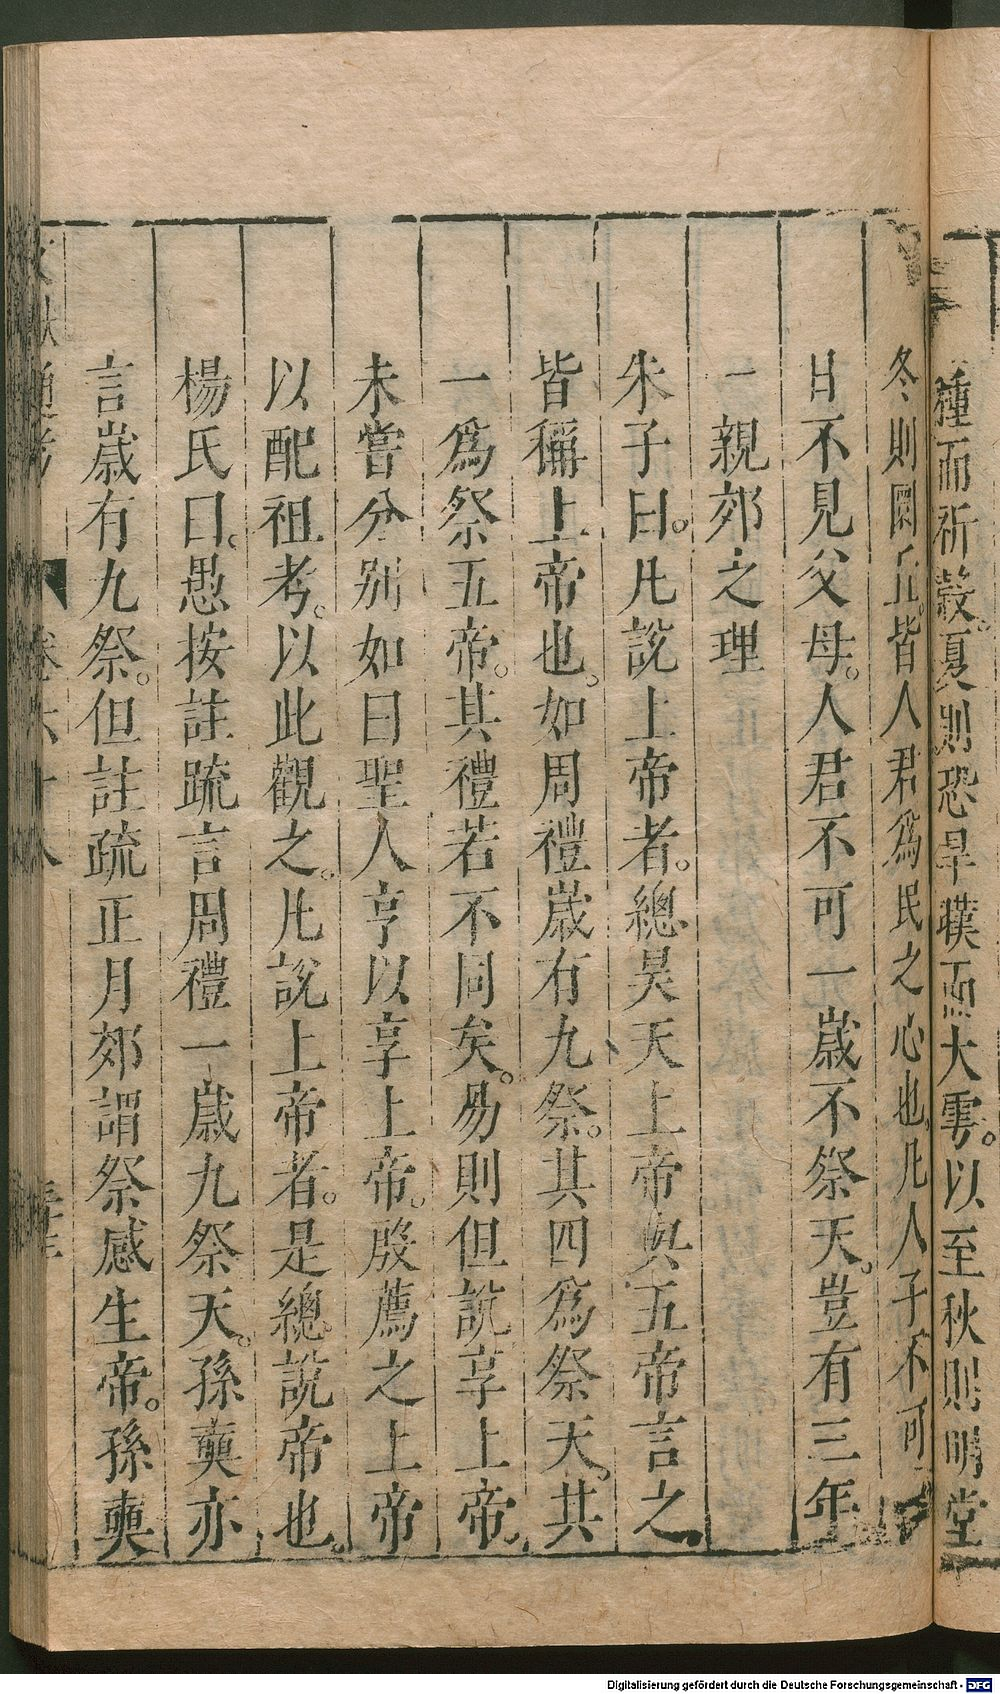 種而祈穀夏則恐旱暵而大雩。以至秋則明堂
冬則圜丘。皆人君爲民之心也。凡人子不可
日不見父母。人君不可一歲不祭天。豈有三年
一親郊之理
朱子曰。凡說上帝者。總昊天上帝與五帝言之。
皆稱上帝也。如周禮歲有九祭。其四爲祭天。其
一爲祭五帝。其禮若不同矣。易則但說享上帝。
未嘗分別如曰聖人亨以享上帝。殷薦之上帝
以配祖考。以此觀之。凡說上帝者。是總說帝也。
楊氏曰。愚按註疏言周禮一歲九祭天。孫奭亦
言歲有九祭。但註疏正月郊謂祭感生帝。孫奭
文獻通考 卷六十八
Digitalisierung gefördert durch die Deutsche Forschungsgemeinschaft - DFG